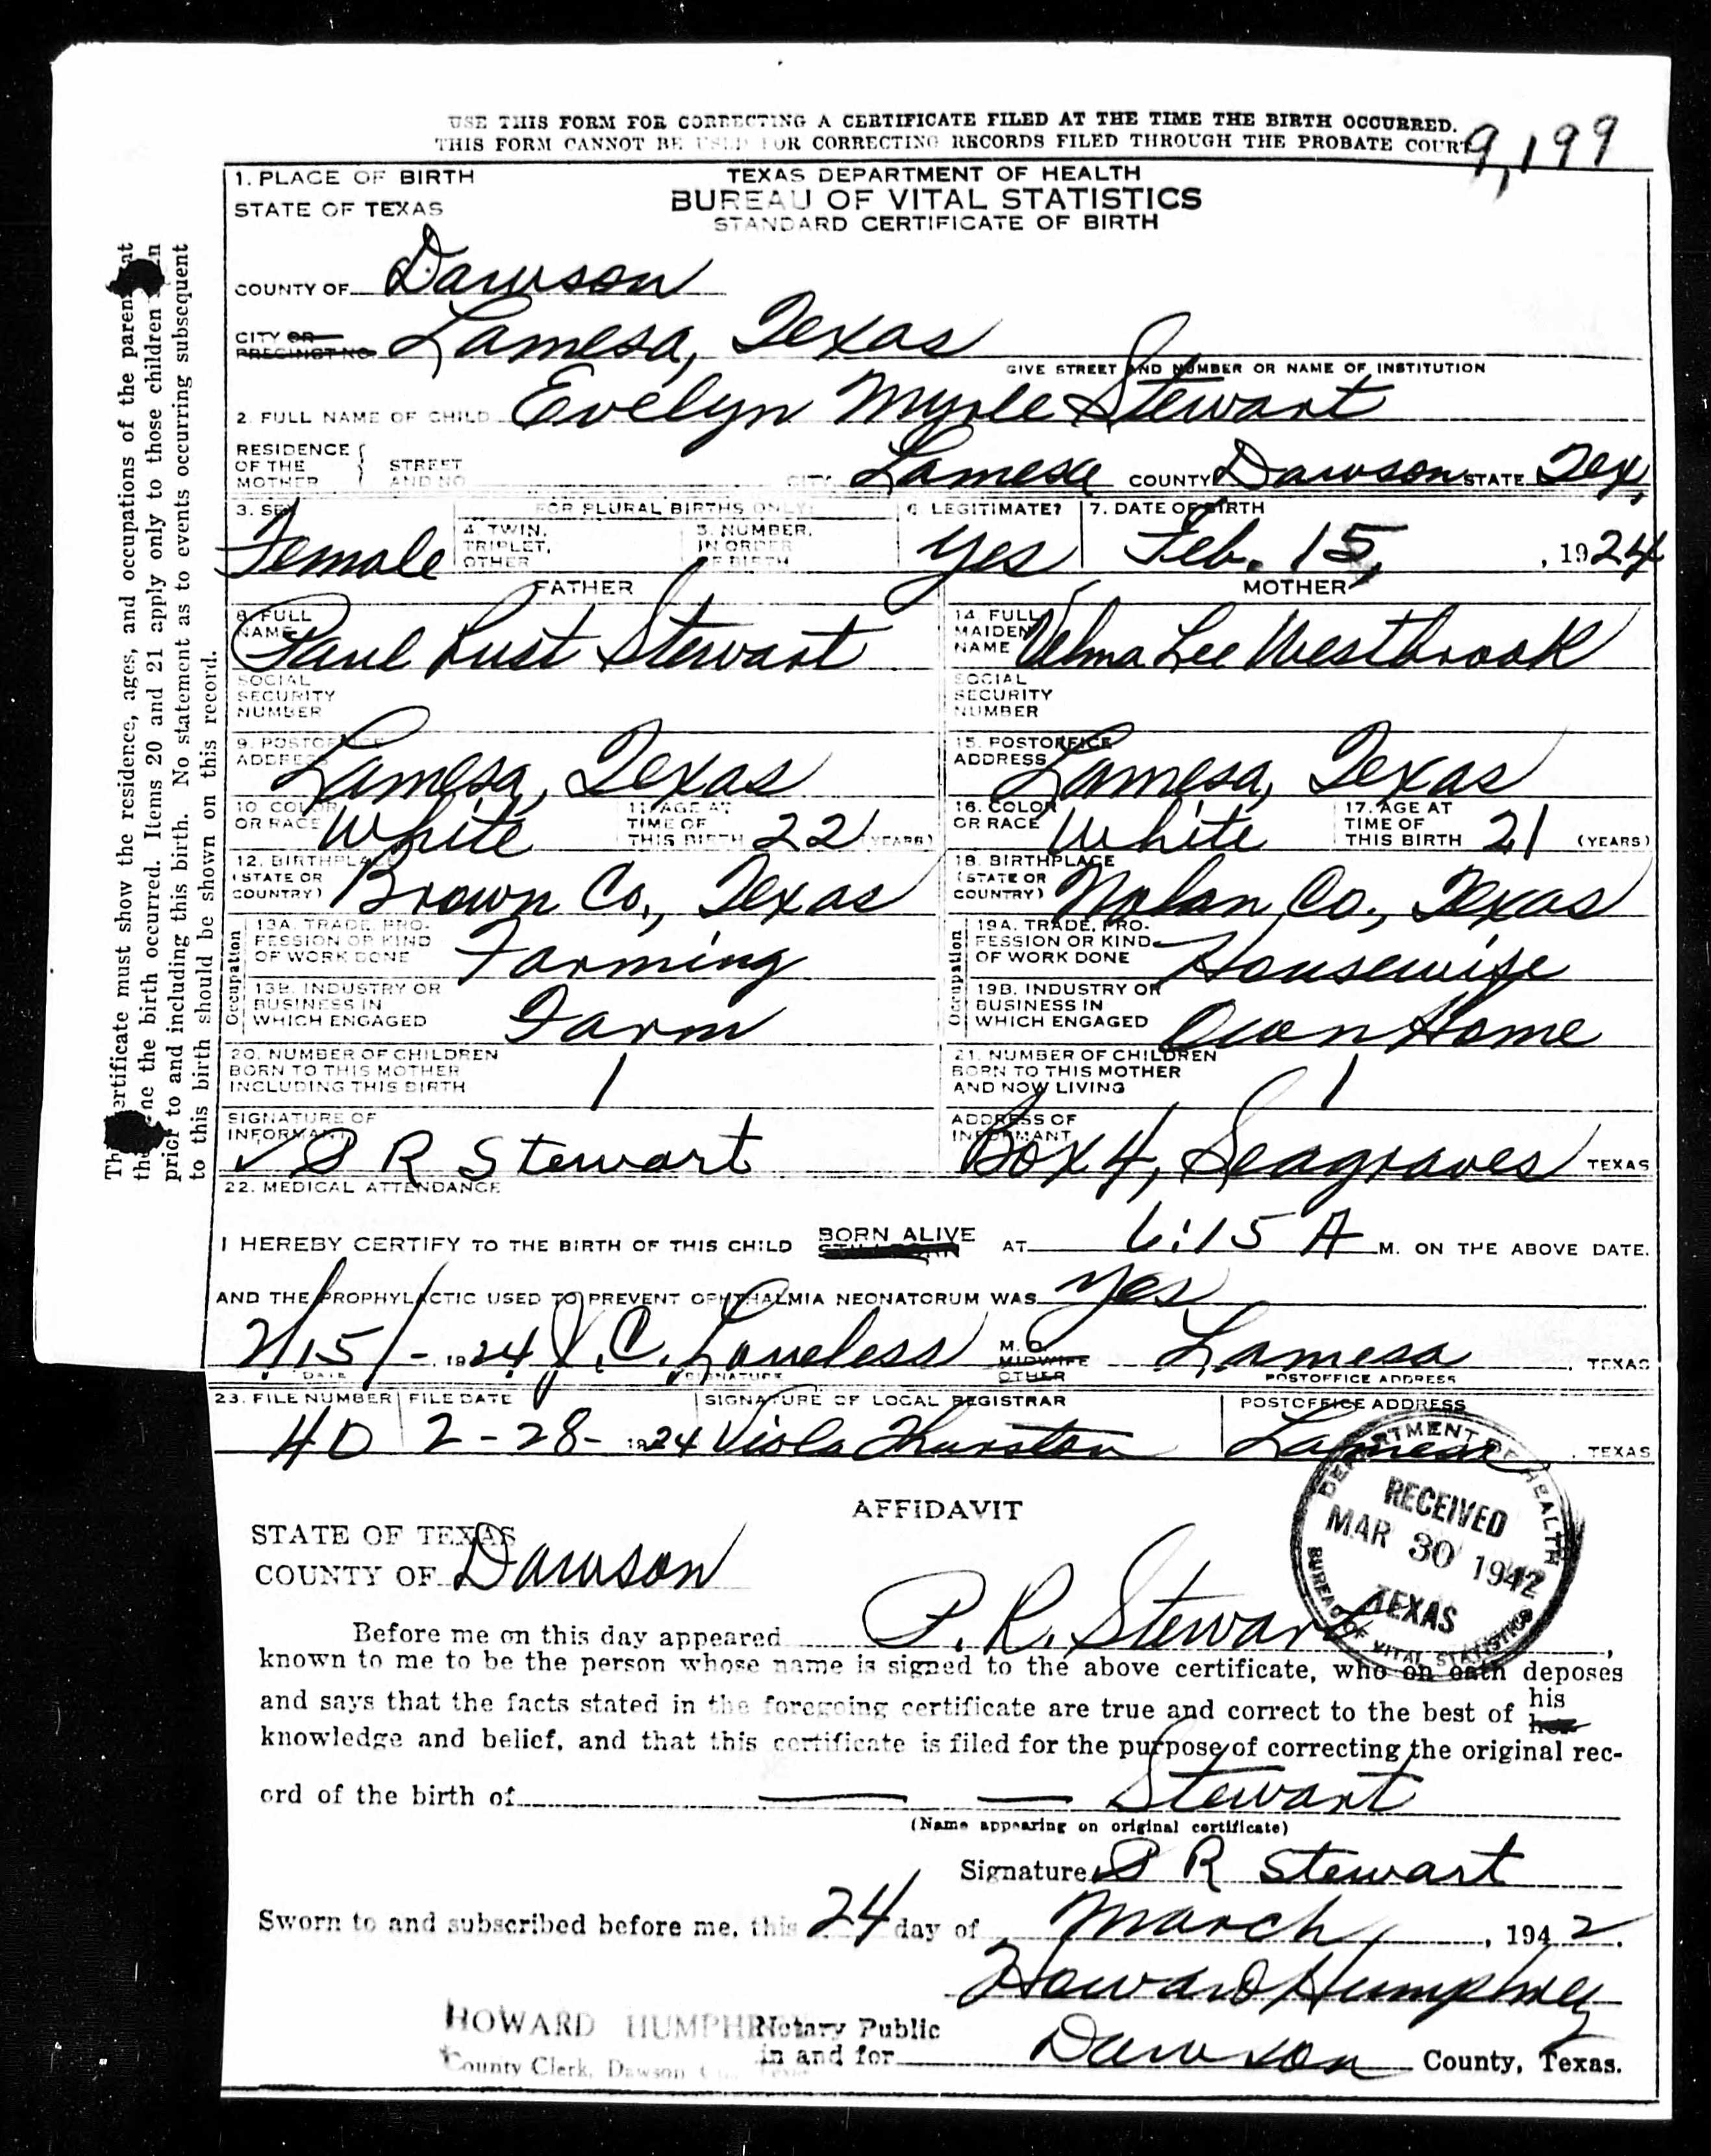 USE THIS FORM FOR CORRECTING A CERTIFICATE FILED AT THE TIME THE BIRTH OCCURRED.
THIS FORM CANNOT BE USED FOR CORRECTING RECORDS FILED THROUGH THE PROBATE COURT
9,199
1. PLACE OF BIRTH
STATE OF TEXAS
TEXAS DEPARTMENT OF HEALTH
BUREAU OF VITAL STATISTICS
STANDARD CERTIFICATE OF BIRTH
COUNTY OF Dawson
CITY OR PRECINCT NO Lamesa, Texas
GIVE STREET AND NUMBER OR NAME OF INSTITUTION
2. FULL NAME OF CHILD Evelyn Myrle Stewart
RESIDENCE OF THE MOTHER { STREET AND NO. CITY Lamesa COUNTY Dawson STATE Tex.
3. SEX Female
FOR PLURAL BIRTHS ONLY:
4. TWIN, TRIPLET, OTHER
5. NUMBER, IN ORDER OF BIRTH
6 LEGITIMATE? Yes
7. DATE OF BIRTH Feb. 15, , 1924
FATHER
8. FULL NAME Paul Rust Stewart
SOCIAL SECURITY NUMBER
9. POSTOFFICE ADDRESS Lamesa, Texas
10 COLOR OR RACE White
11. AGE AT TIME OF THIS BIRTH 22 (YEARS)
12. BIRTHPLACE (STATE OR COUNTRY) Brown Co., Texas
Occupation
13A. TRADE, PROFESSION OR KIND OF WORK DONE Farming
13B. INDUSTRY OR BUSINESS IN WHICH ENGAGED Farm
20. NUMBER OF CHILDREN BORN TO THIS MOTHER INCLUDING THIS BIRTH 1
MOTHER
14 FULL MAIDEN NAME Velma Lee Westbrook
SOCIAL SECURITY NUMBER
15. POSTOFFICE ADDRESS Lamesa, Texas
16. COLOR OR RACE White
17. AGE AT TIME OF THIS BIRTH 21 (YEARS)
18. BIRTHPLACE (STATE OR COUNTRY) Nolan Co., Texas
Occupation
19A. TRADE, PROFESSION OR KIND OF WORK DONE Housewife
19B. INDUSTRY OR BUSINESS IN WHICH ENGAGED Own Home
21. NUMBER OF CHILDREN BORN TO THIS MOTHER AND NOW LIVING 1
SIGNATURE OF INFORMANT P R Stewart
ADDRESS OF INFORMANT Box 4, Seagraves TEXAS
22. MEDICAL ATTENDANCE
I HEREBY CERTIFY TO THE BIRTH OF THIS CHILD BORN ALIVE STILLBORN AT 6:15 A M. ON THE ABOVE DATE.
AND THE PROPHYLACTIC USED TO PREVENT OPHTHALMIA NEONATORUM WAS yes
2/15/- 1924 J. C. Loveless M. D. MIDWIFE OTHER Lamesa, TEXAS
DATE SIGNATURE POSTOFFICE ADDRESS
23. FILE NUMBER FILE DATE SIGNATURE OF LOCAL REGISTRAR POSTOFFICE ADDRESS
40 2-28- 1924 Viola Thurston Lamesa, TEXAS
AFFIDAVIT
STATE OF TEXAS
COUNTY OF Dawson
DEPARTMENT OF HEALTH
RECEIVED
MAR 30 1942
TEXAS
BUREAU OF VITAL STATISTICS
Before me on this day appeared P. R. Stewart,
known to me to be the person whose name is signed to the above certificate, who on oath deposes
and says that the facts stated in the foregoing certificate are true and correct to the best of his her
knowledge and belief, and that this certificate is filed for the purpose of correcting the original rec-
ord of the birth of — — Stewart
(Name appearing on original certificate)
Signature P R Stewart
Sworn to and subscribed before me, this 24 day of March, 1942.
Howard Humphrey
HOWARD HUMPHR Notary Public
County Clerk, Dawson Co., Texas
in and for Dawson County, Texas.
ertificate must show the residence, ages, and occupations of the paren at
the ne the birth occurred. Items 20 and 21 apply only to those children n
prior to and including this birth. No statement as to events occurring subsequent
to this birth should be shown on this record.